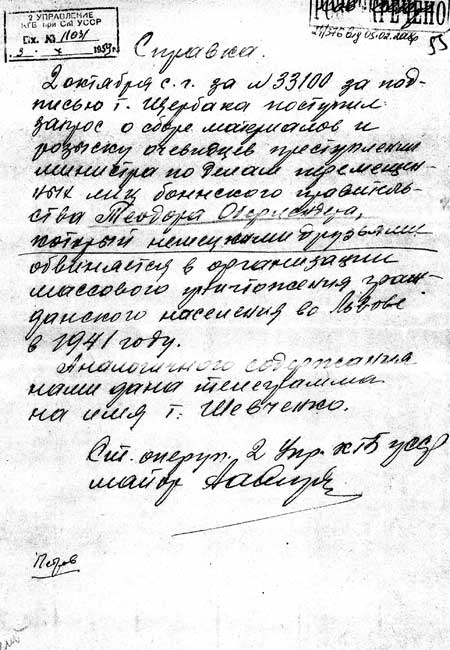 2 УПРАВЛЕНИЕ
КГБ при СМ УССР
Вх. № 11031
1959 г.
55
Справка.
2 октября с. г. за № 33100 за под-
писью т. Щербака поступил
запрос о сборе материалов и
розыску очевидцев преступлений
министра по делам перемещен-
ных лиц боннского правитель-
ства Теодора Оберлендера,
который немецкими друзьями
обвиняется в организации
массового уничтожения граж-
данского населения во Львове
в 1941 году.
Аналогичного содержания
нами дана телеграмма
на имя т. Шевченко.
Ст. оперуп. 2 Упр. КГБ УССР
майор